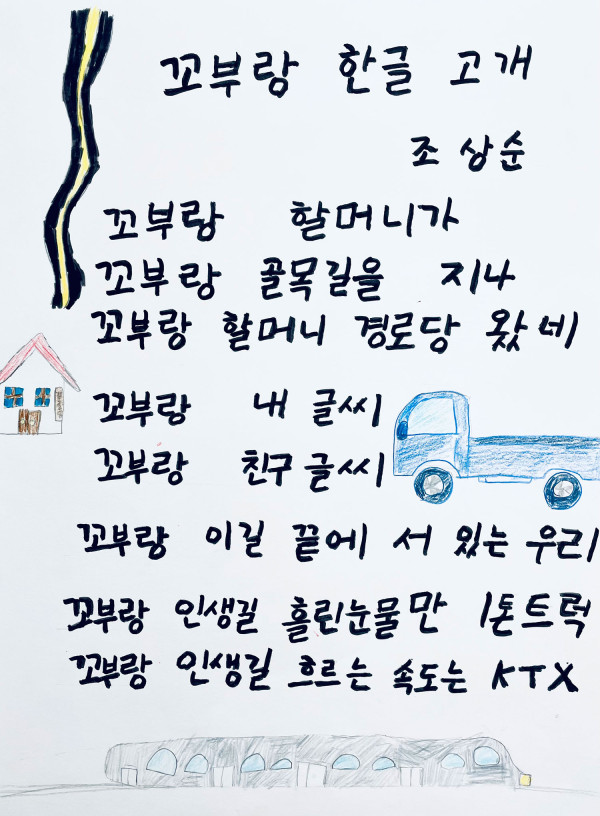 꼬부랑 한글 고개
조 상 순
꼬부랑 할머니가
꼬부랑 골목길을 지나
꼬부랑 할머니 경로당 왔네
꼬부랑 내 글씨
꼬부랑 친구 글씨
꼬부랑 이길 끝에 서 있는 우리
꼬부랑 인생길 흘린눈물만 1톤트럭
꼬부랑 인생길 흐르는 속도는 KTX